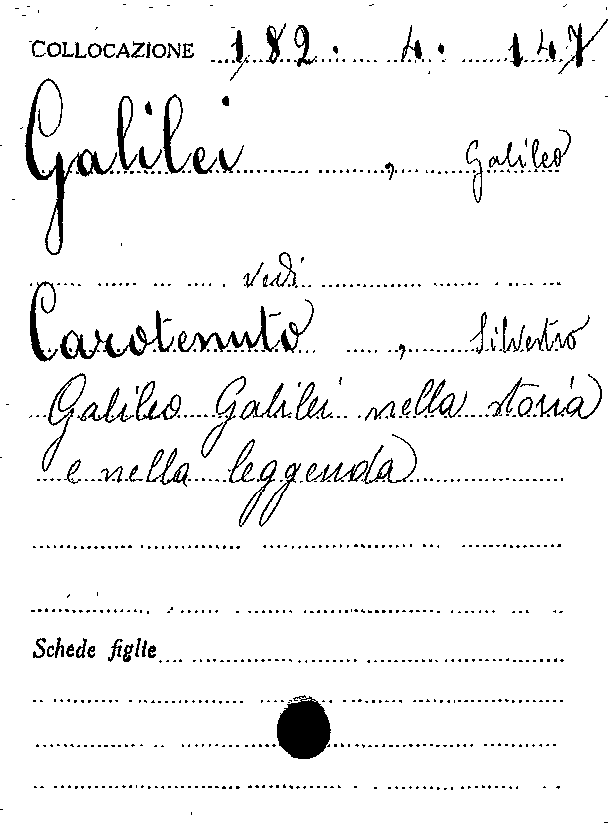 COLLOCAZIONE 182. 4. 147
Galilei , Galileo
vedi
Carotenuto , Silvestro
Galileo Galilei nella storia
e nella leggenda
Schede figlie